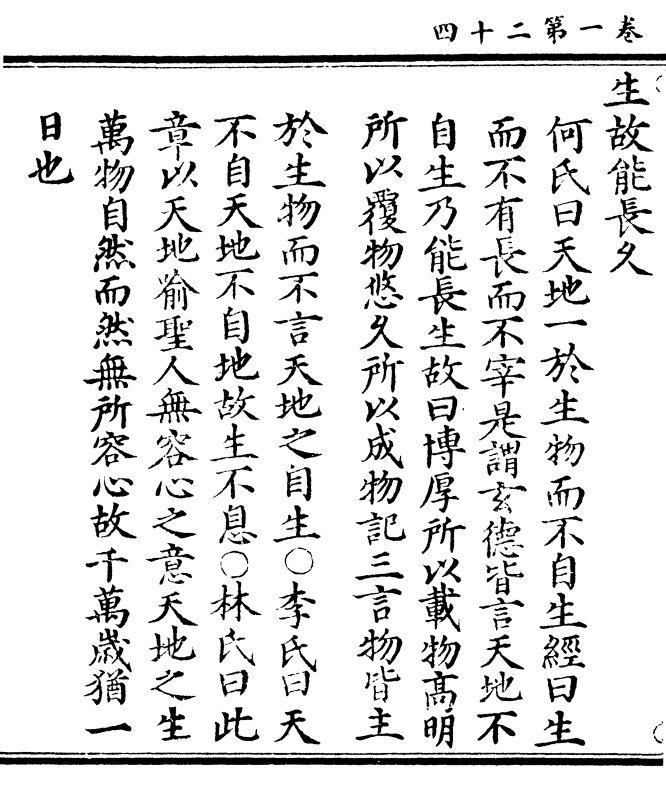 卷一第二十四
生故能長久
何氏曰天地一於生物而不自生經曰生
而不有長而不宰是謂玄德皆言天地不
自生乃能長生故曰博厚所以載物高明
所以覆物悠久所以成物記三言物皆主
於生物而不言天地之自生○李氏曰天
不自天地不自地故生不息○林氏曰此
章以天地喻聖人無容心之意天地之生
萬物自然而然無所容心故千萬歲猶一
日也